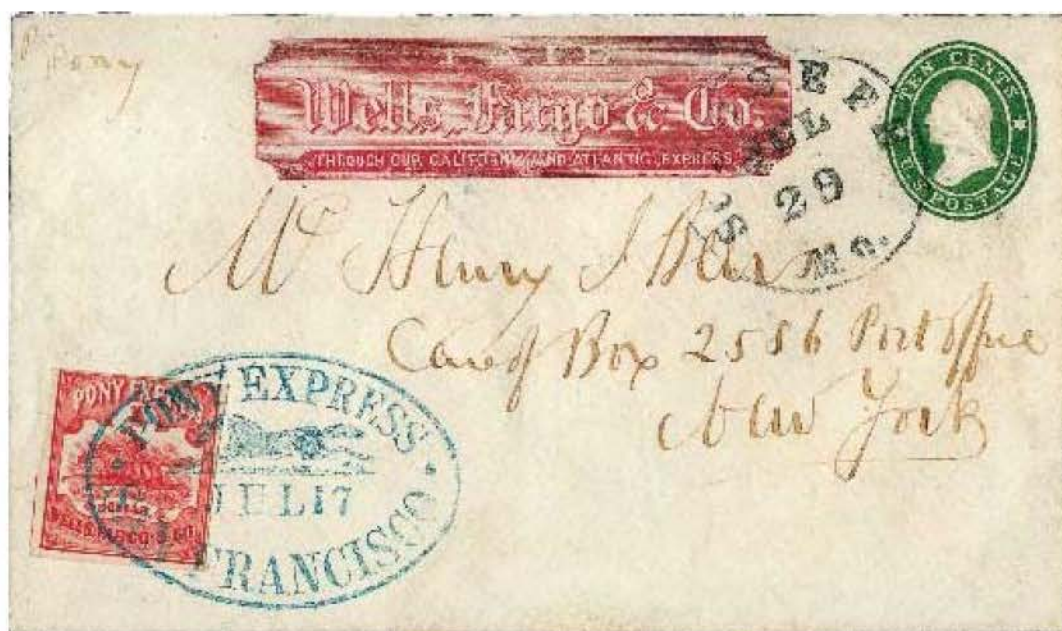 Pony
PAID
Wells, Fargo & Co.
THROUGH OUR CALIFORNIA AND ATLANTIC EXPRESS.
TEN CENTS
U.S. POSTAGE
JUL
29
Mo.
Mr Henry J
Care of Box 2556 Post Office
New York
PONY EXPRESS
WELLS, FARGO & CO.
PONY EXPRESS
JUL 17
FRANCISCO